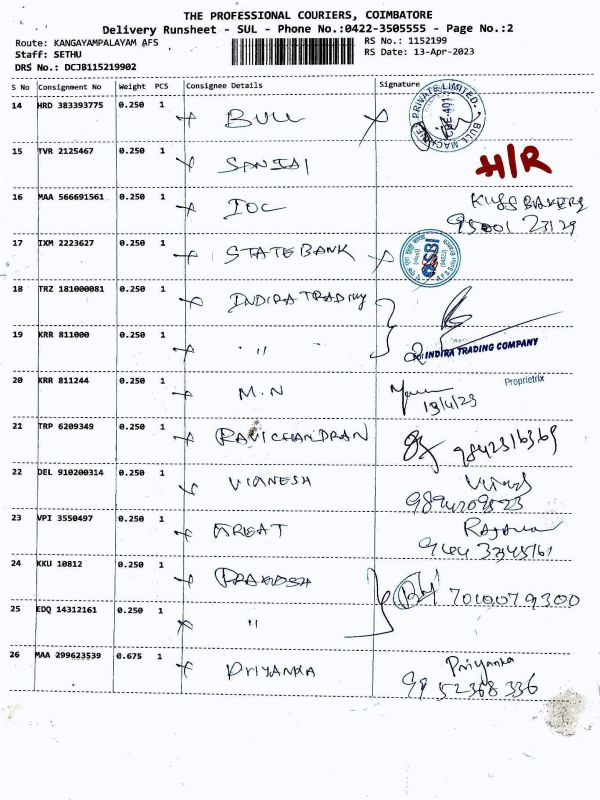 THE PROFESSIONAL COURIERS, COIMBATORE
Delivery Runsheet - SUL - Phone No.:0422-3505555 - Page No.:2
Route: KANGAYAMPALAYAM AFS RS No.: 1152199
Staff: SETHU RS Date: 13-Apr-2023
DRS No.: DCJB115219902
S No Consignment No Weight PCS Consignee Details Signature
14 HRD 383393775 0.250 1 BULL
15 TVR 2125467 0.250 1 H/R
16 MAA 566691561 0.250 1 IOC
17 IXM 2223627 0.250 1 STATE BANK SBI
18 TRZ 181000081 0.250 1 INDIRA TRADING
19 KRR 811000 0.250 1 " For INDIRA TRADING COMPANY
Proprietrix
20 KRR 811244 0.250 1 M.N
13/4/23
21 TRP 6209349 0.250 1 RAVICHANDRAN
22 DEL 910200314 0.250 1 VIGNESH
23 VPI 3550497 0.250 1
24 KKU 10812 0.250 1 PRAKASH 7010079300
25 EDQ 14312161 0.250 1 "
26 MAA 299623539 0.675 1 PRIYANKA Priyanka